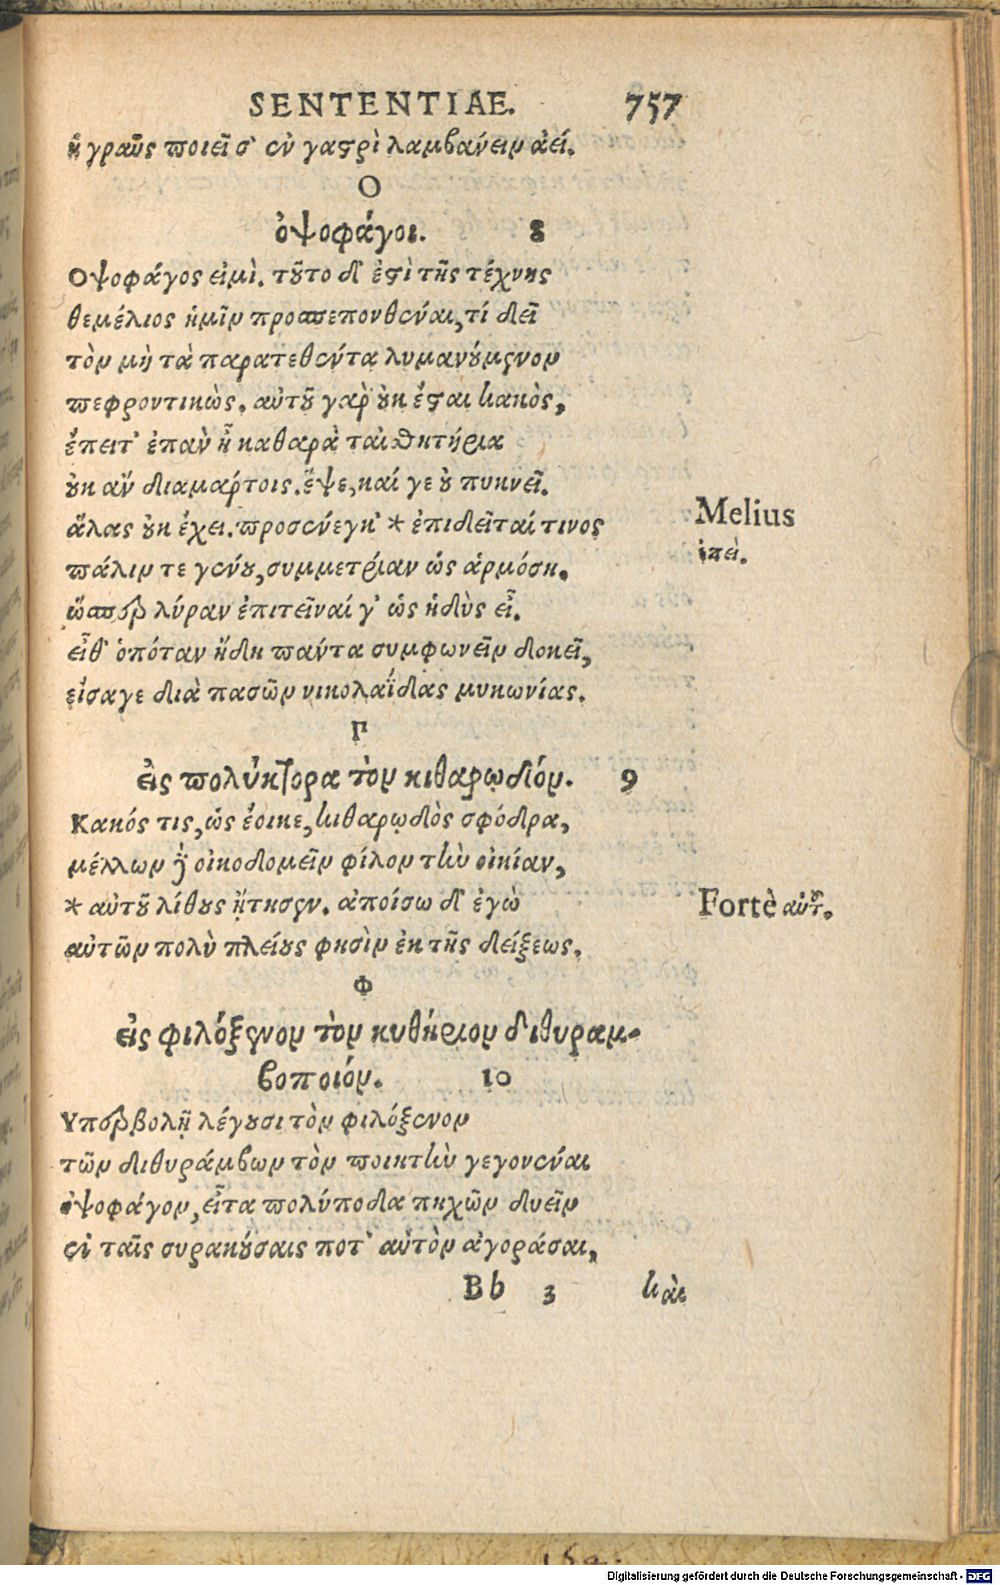 SENTENTIAE. 757
ἢ γραῦς ποιεῖ σ' ἐν γαστρὶ λαμβάνειν ἀεί.
Ο
ὀψοφάγοι. 8
Οψοφάγος εἰμὶ. τοῦτο δ' ἐστὶ τῆς τέχνης
θεμέλιος ἡμῖν προσπεπονθέναι, τί δεῖ
τὸν μὴ τὰ παρατεθέντα λυμανούμενον
πεφροντικὼς. αὐτοῦ γὰρ οὐκ ἔσται κακὸς,
ἔπειτ' ἐπὰν ᾖ καθαρὰ ταἰσθητήρια
οὐκ ἂν διαμάρτοις. ἕψε, καί γε οὐ πυκνεῖ.
ἅλας οὐκ ἔχει. προσένεγκ' * ἐπιδεῖταί τινος
πάλιν τε γεύου, συμμετρίαν ὡς ἁρμόσῃ.
ὥσπερ λύραν ἐπιτεῖναί γ' ὡς ἡδὺς εἶ.
εἶθ' ὁπόταν ἤδη πάντα συμφωνεῖν δοκεῖ,
εἴσαγε διὰ πασῶν νικολαΐδας μυκωνίας.
Melius
ἐπεὶ.
Γ
εἰς πολύκτορα τὸν κιθαρῳδόν. 9
Κακός τις, ὡς ἔοικε, κιθαρῳδὸς σφόδρα,
μέλλων γ' οἰκοδομεῖν φίλον τὴν οἰκίαν,
* αὐτοῦ λίθους ᾔτησεν. ἀποίσω δ' ἐγὼ
αὐτῶν πολὺ πλείους φησὶν ἐκ τῆς δείξεως.
Fortè αὐτ.
Φ
εἰς φιλόξενον τὸν κυθήριον διθυραμ-
βοποιόν. 10
Υπερβολῇ λέγουσι τὸν φιλόξενον
τῶν διθυράμβων τὸν ποιητὴν γεγονέναι
ὀψοφάγον, εἶτα πολύποδα πηχῶν δυεῖν
ἐν ταῖς συρακούσαις ποτ' αὐτὸν ἀγοράσαι,
Bb 3 καὶ
Digitalisierung gefördert durch die Deutsche Forschungsgemeinschaft - DFG